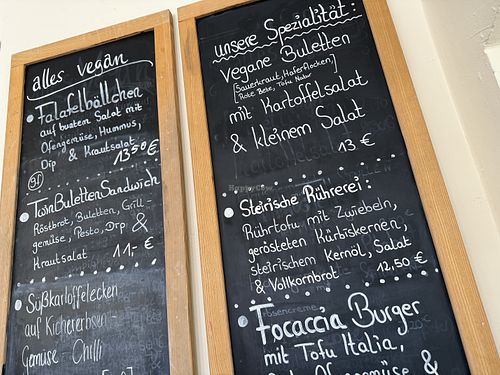 alles vegan
Falafelbällchen
auf buntem Salat mit
Ofengemüse, Hummus,
Dip & Krautsalat
13,50 €
gf
TwinBulettenSandwich
Röstbrot, Buletten, Grill-
gemüse, Pesto, Dip &
Krautsalat 11,- €
Süßkartoffelecken
auf Kichererbsen-
Gemüse - Chilli
unsere Spezialität:
vegane Buletten
[Sauerkraut, Haferflocken,
Rote Bete, Tofu Natur]
mit Kartoffelsalat
& kleinem Salat
13 €
Steirische Rührerei:
Rührtofu mit Zwiebeln,
gerösteten Kürbiskernen,
steirischem Kernöl, Salat
& Vollkornbrot 12,50 €
Focaccia Burger
mit Tofu Italia,
Ofengemüse &
HappyCow